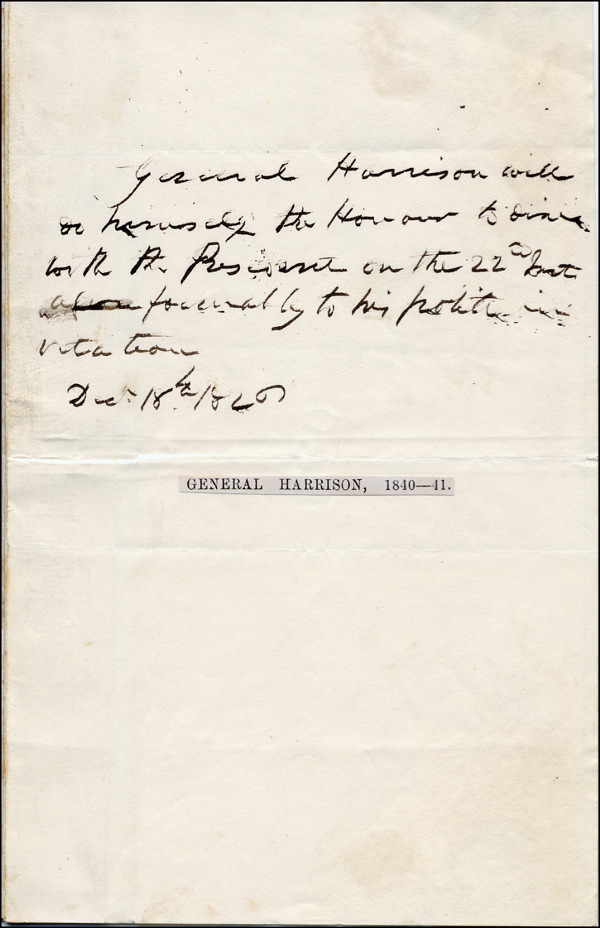 General Harrison will
do himself the Honour to dine
with the President on the 22nd Inst
favourably to his polite in
vitation
Decr 18th 1826
GENERAL HARRISON, 1840—41.